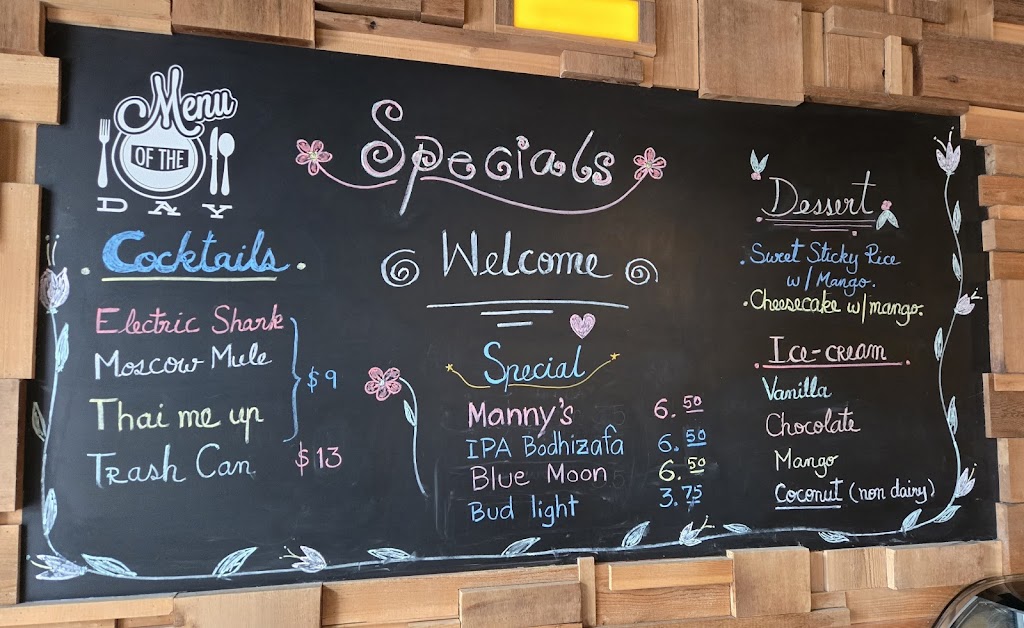 Menu
OF THE
DAY
Specials
Cocktails
Electric Shark
Moscow Mule
Thai me up
$9
Trash Can $13
Welcome
Special
Manny's 6.50
IPA Bodhizafa 6.50
Blue Moon 6.50
Bud light 3.75
Dessert
. Sweet Sticky Rice
w/ Mango.
. Cheesecake w/mango.
Ice-cream
Vanilla
Chocolate
Mango
Coconut (non dairy)